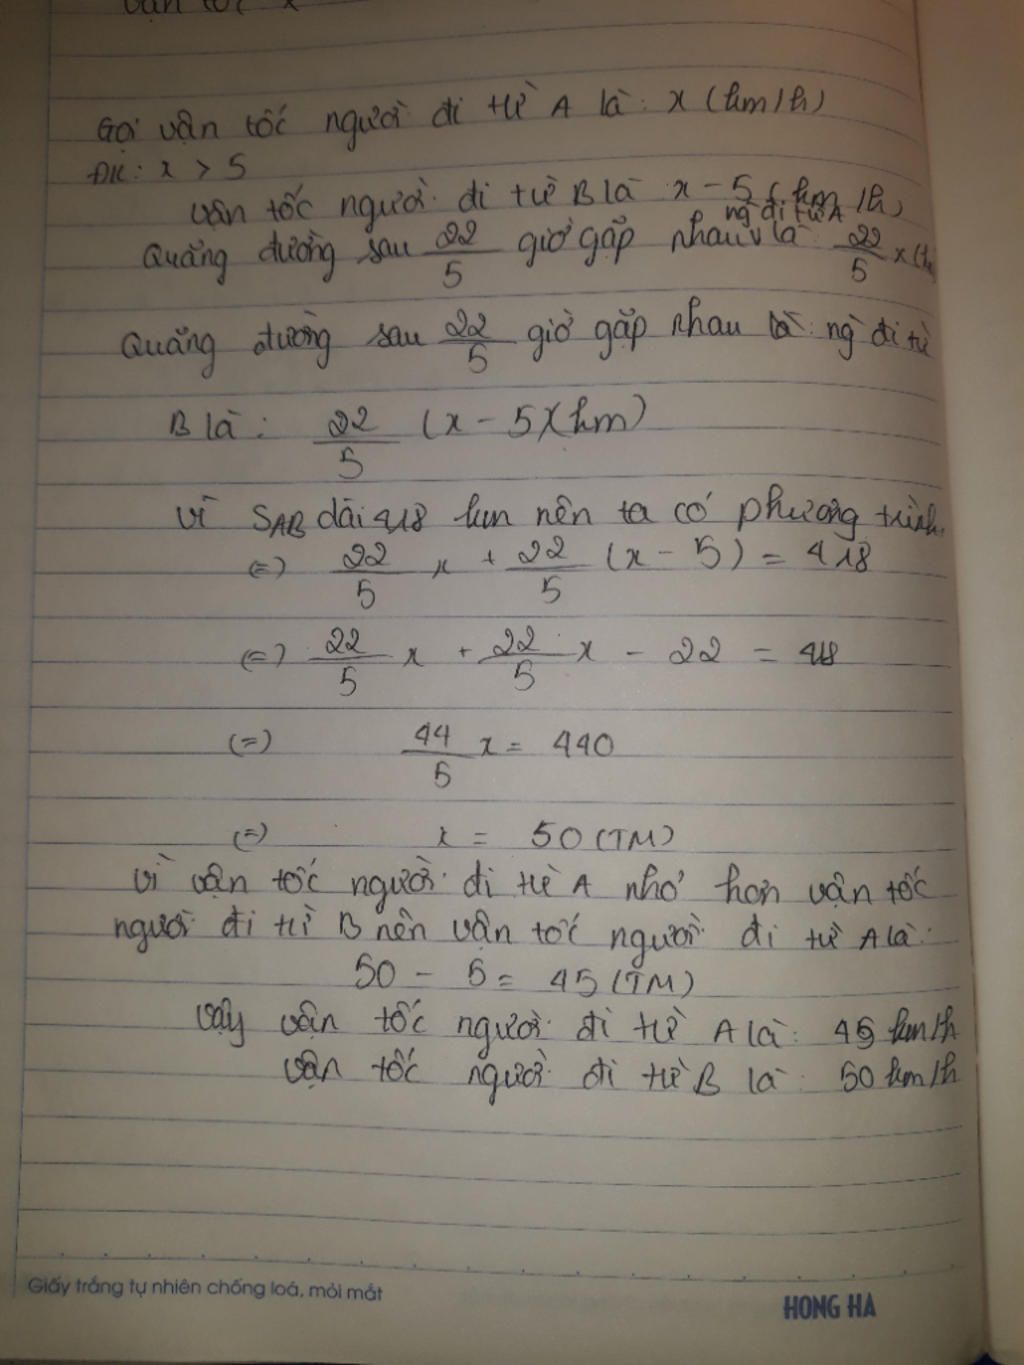 vận tốc x
Gọi vận tốc người đi từ A là: x (km/h)
ĐK: x > 5
vận tốc người đi từ B là x - 5 (km/h)
ng đi từ A
Quãng đường sau 22/5 giờ gặp nhau v là 22/5 x (k
Quãng đường sau 22/5 giờ gặp nhau là: ng đi từ
B là: 22/5 (x - 5)(km)
vì SAB dài 418 km nên ta có phương trình
(=) 22/5 x + 22/5 (x - 5) = 418
(=) 22/5 x + 22/5 x - 22 = 418
(=) 44/5 x = 440
(=) x = 50 (TM)
vì vận tốc người đi từ A nhỏ hơn vận tốc
người đi từ B nên vận tốc người đi từ A là:
50 - 5 = 45 (TM)
Vậy vận tốc người đi từ A là: 45 km/h
vận tốc người đi từ B là: 50 km/h
Giấy trắng tự nhiên chống loá, mỏi mắt
HONG HA